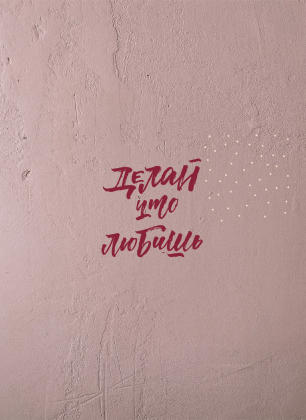 Делай
что
любишь